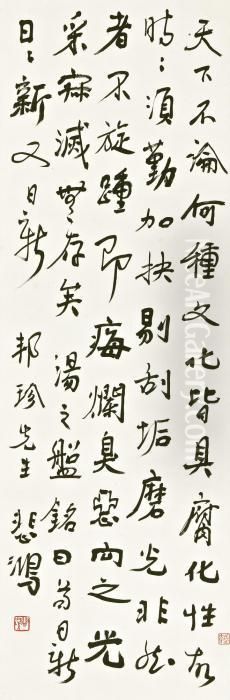 天下不論何種文化皆具腐化性故
時時須勤加抉剔刮垢磨光非然
者不旋踵即痗爛臭惡向之光
采寂滅無存矣湯之盤銘曰苟日新
日日新又日新
邦珍先生 悲鴻